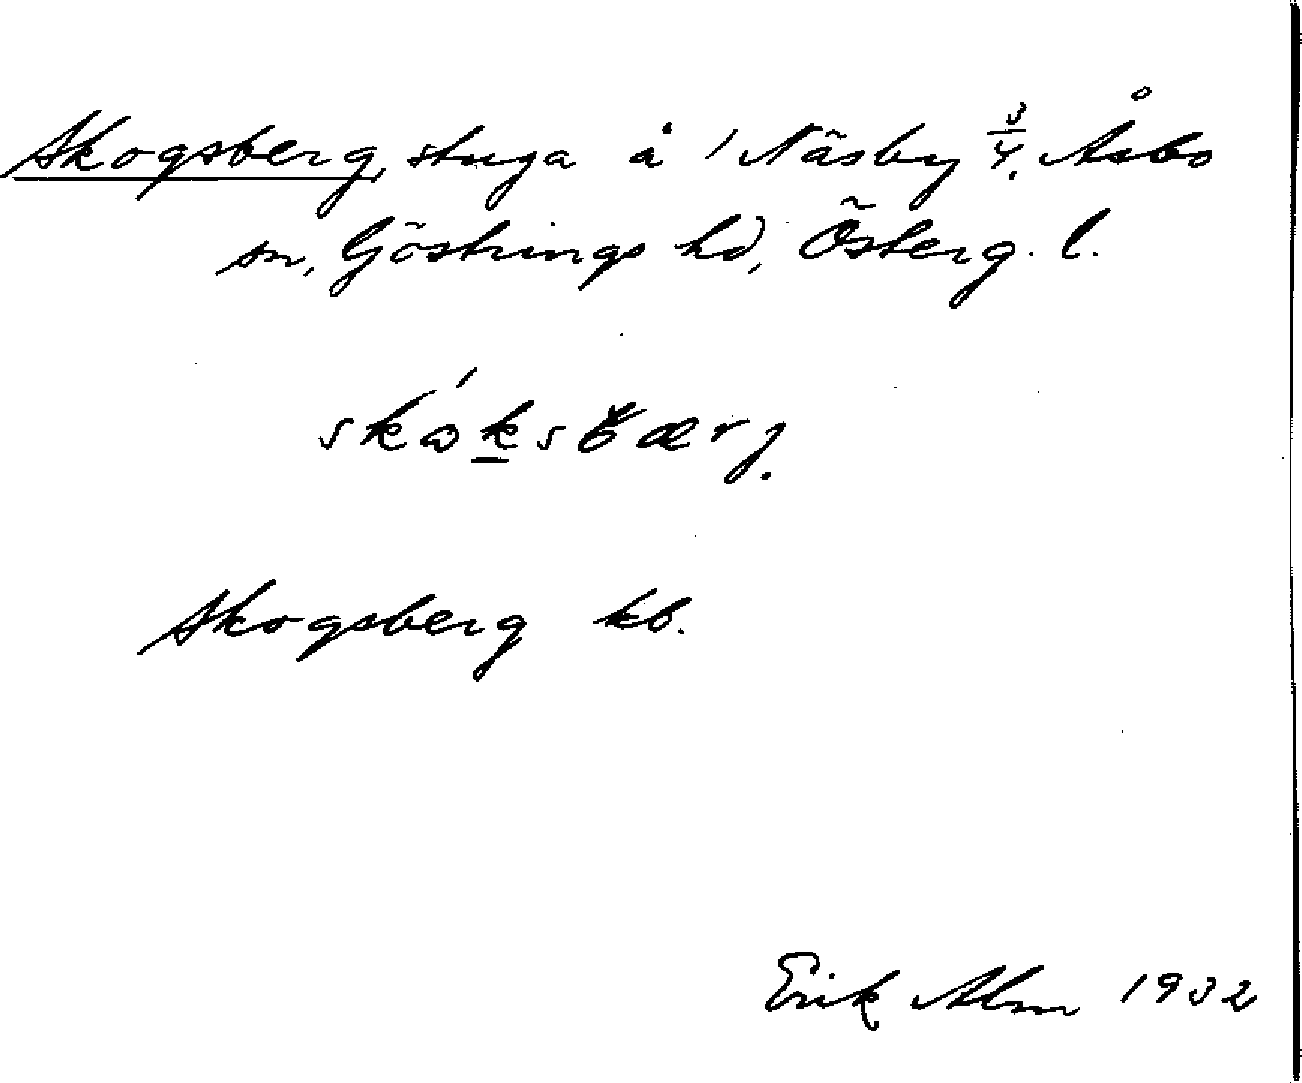 Skogsberg, stuga å 1 Näsby 3/4. Åsbo
sn, Göstrings hd, Österg. l.
skóksbærj.
Skogsberg kb.
Erik Alm 1932